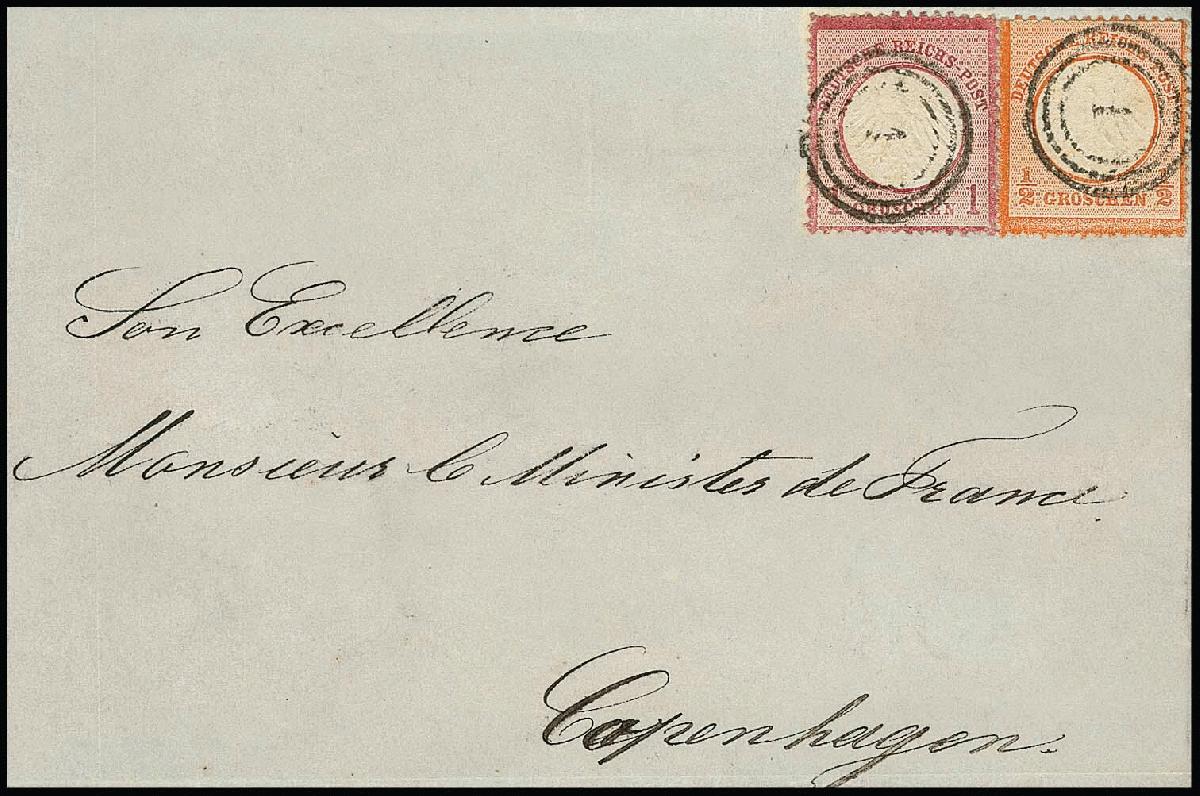 DEUTSCHE REICHS-POST
1 GROSCHEN 1
1
DEUTSCHE REICHS-POST
1/2 GROSCHEN 1/2
1
Son Excellence
Monsieur le Ministre de France.
Copenhagen.